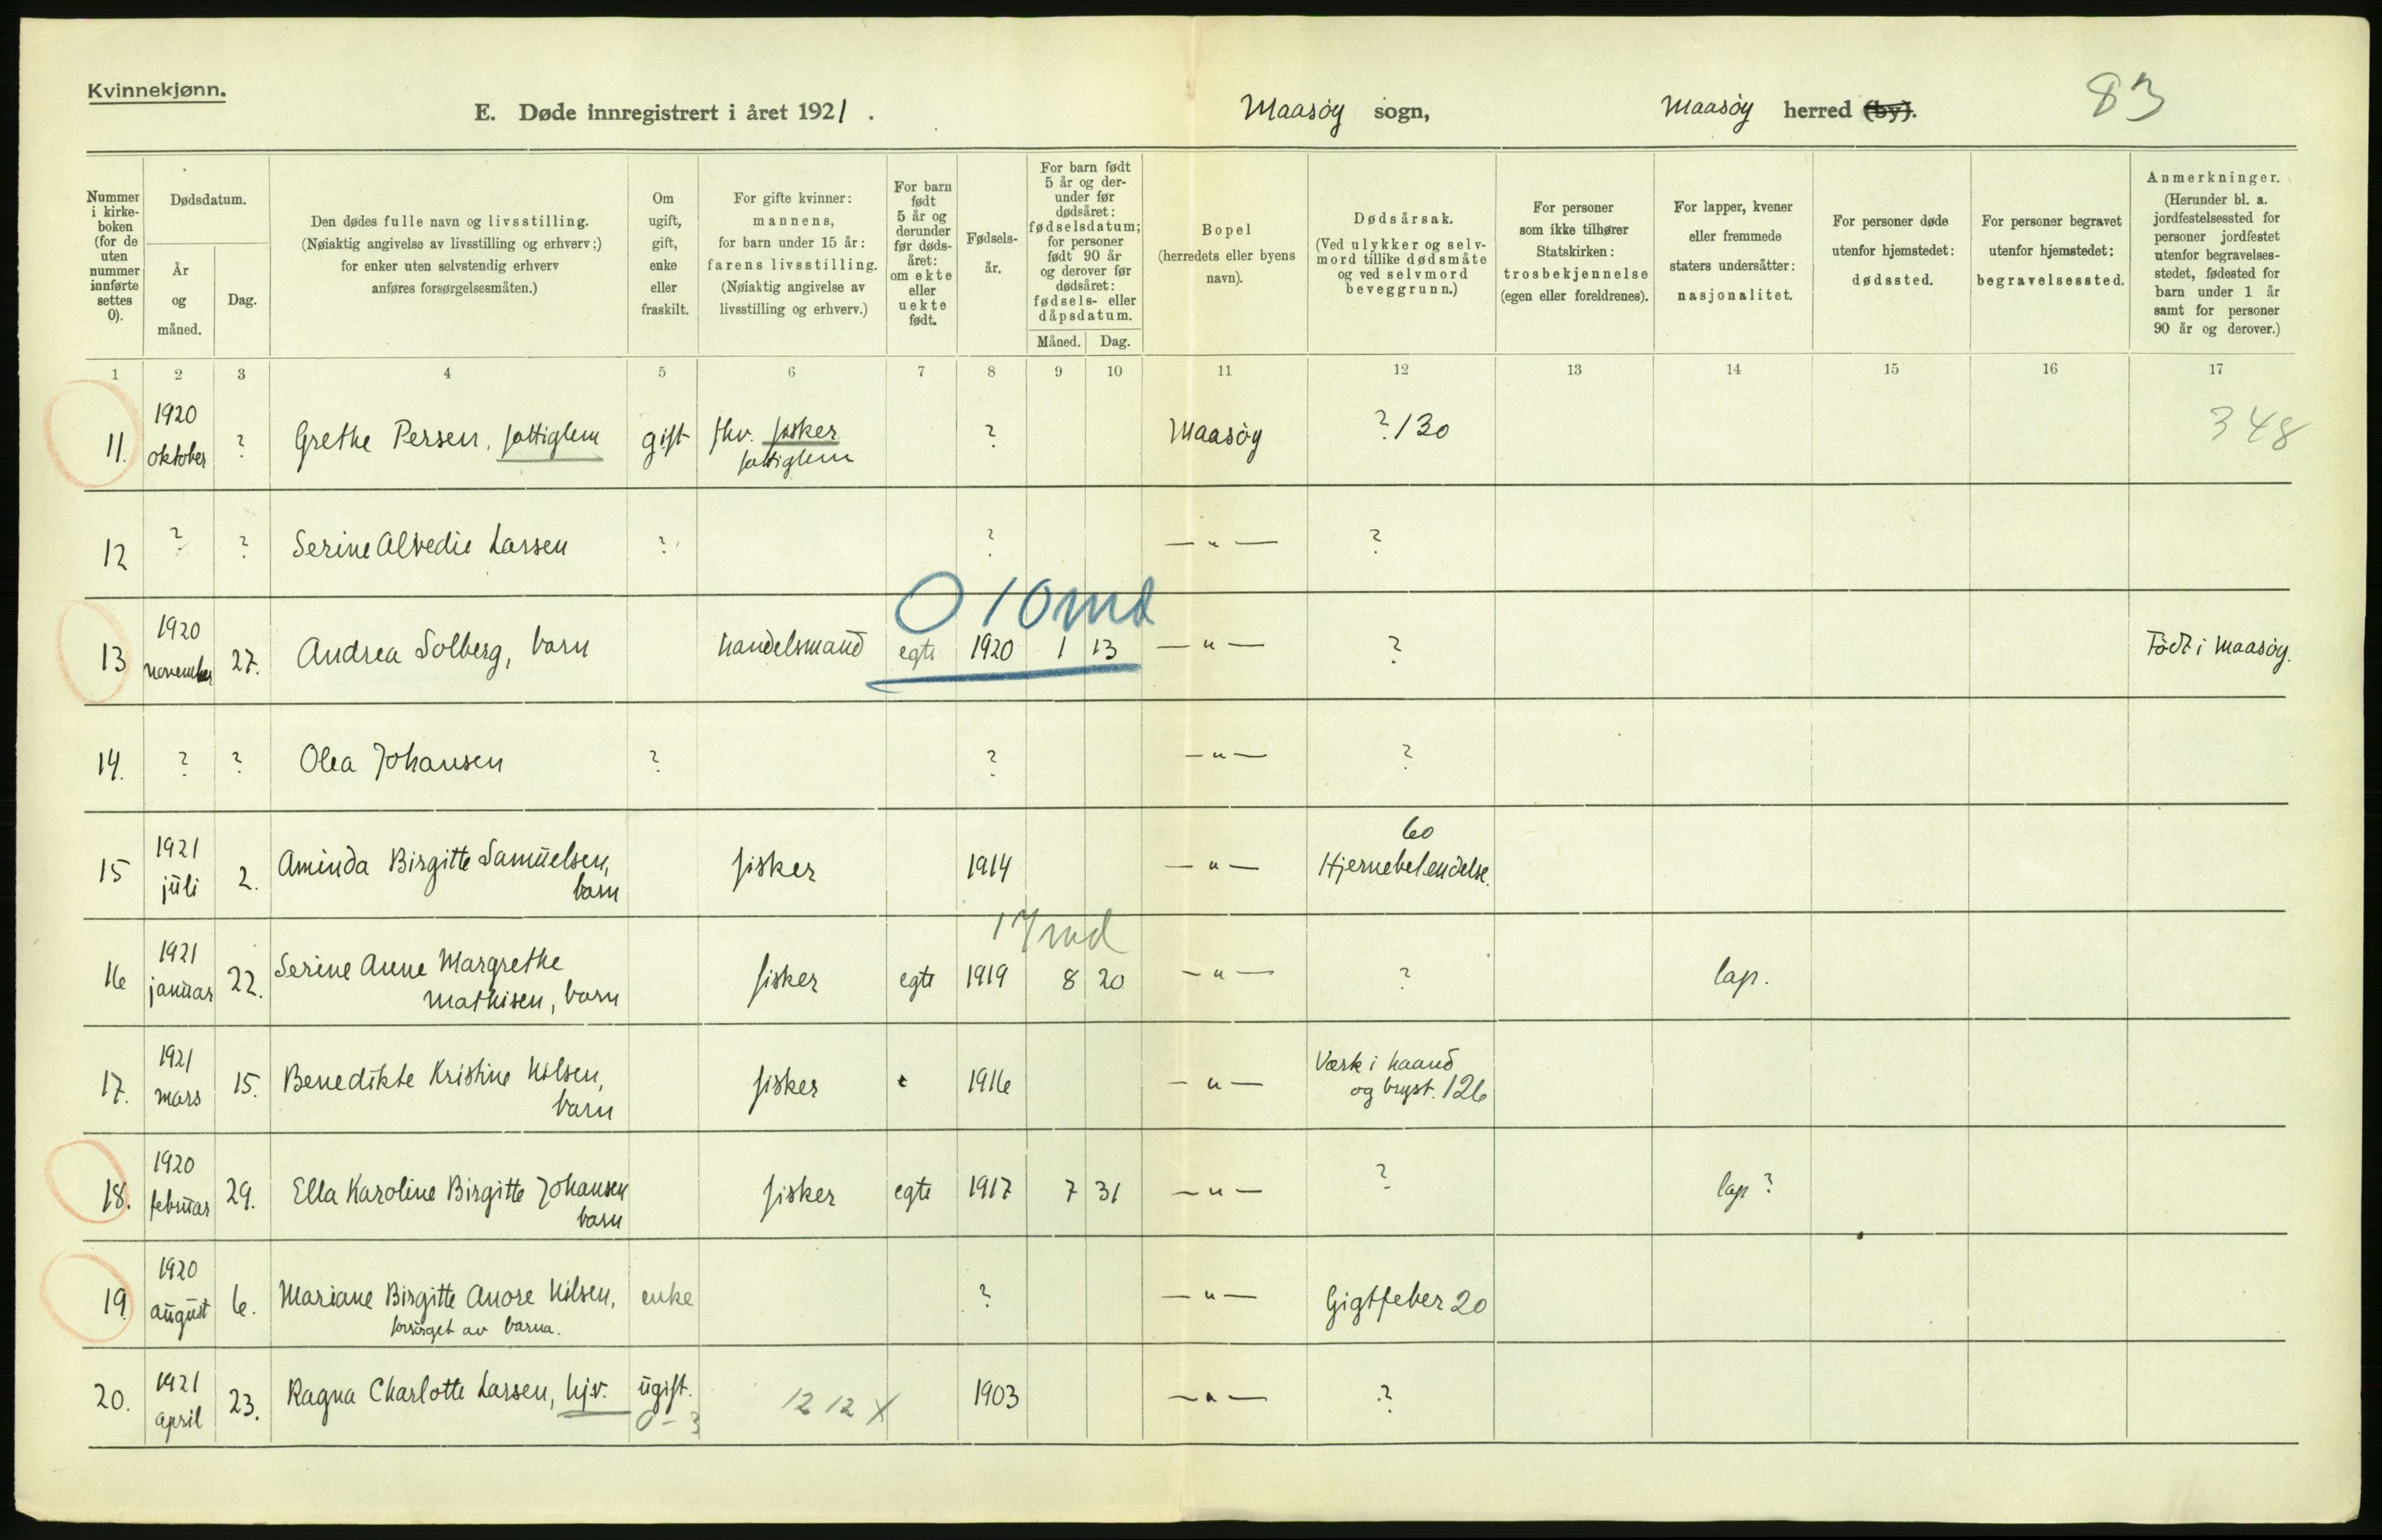 Kvinnekjønn.
E. Døde innregistrert i året 1921.
Maasøy sogn,
Maasøy herred (by).
83
Nummer i kirke- boken (for de uten nummer innførte settes 0).
Dødsdatum.
År og måned.
Dag.
Den dødes fulle navn og livsstilling.
(Nøiaktig angivelse av livsstilling og erhverv;)
for enker uten selvstendig erhverv
anføres forsørgelsesmåten.)
Om ugift, gift, enke eller fraskilt.
For gifte kvinner:
mannens,
for barn under 15 år:
farens livsstilling.
(Nøiaktig angivelse av
livsstilling og erhverv.)
For barn født 5 år og derunder før døds- året: om ekte eller uekte født.
Fødsels- år.
For barn født 5 år og der- under før dødsåret: fødselsdatum; for personer født 90 år og derover før dødsåret: fødsels- eller dåpsdatum.
Måned.
Dag.
Bopel
(herredets eller byens
navn).
Dødsårsak.
(Ved ulykker og selv-
mord tillike dødsmåte
og ved selvmord
beveggrunn.)
For personer
som ikke tilhører
Statskirken:
trosbekjennelse
(egen eller foreldrenes).
For lapper, kvener
eller fremmede
staters undersåtter:
nasjonalitet.
For personer døde
utenfor hjemstedet:
dødssted.
For personer begravet
utenfor hjemstedet:
begravelsessted.
Anmerkninger.
(Herunder bl. a.
jordfestelsessted for
personer jordfestet
utenfor begravelses-
stedet, fødested for
barn under 1 år
samt for personer
90 år og derover.)
1 2 3 4 5 6 7 8 9 10 11 12 13 14 15 16 17
11. 1920 oktober ? Grethe Persen, fattiglem gift fhv. fisker fattiglem ? Maasøy ? 130 348
12 ? ? Serine Alvedie Larsen ? ? — " — ?
0 10 md
13 1920 november 27. Andrea Solberg, barn handelsmand egte 1920 1 13 — " — ? Født i Maasøy.
14. ? ? Olea Johansen ? ? — " — ?
15 1921 juli 2. Aminda Birgitte Samuelsen, barn fisker 1914 — " — 60 Hjernebetendelse.
17 md
16 1921 januar 22. Serine Anne Margrethe Mathisen, barn fisker egte 1919 8 20 — " — ? lap.
17. 1921 mars 15. Benedikte Kristine Nilsen, barn fisker 1916 — " — Værk i haand og bryst. 126
18. 1920 februar 29. Ella Karoline Birgitte Johansen barn fisker egte 1917 7 31 — " — ? lap ?
19. 1920 august 6. Mariane Birgitte Anore Nilsen, forsørget av barna. enke ? — " — Gigtfeber 20
20. 1921 april 23. Ragna Charlotte Larsen, hjv. ugift. 0 – 3 12 12 X 1903 — " — ?